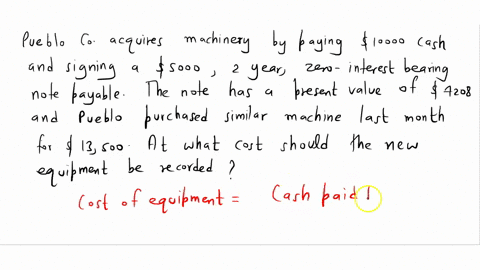 Pueblo Co. acquires machinery by paying $10000 cash
and signing a $5000, 2 year, zero-interest bearing
note payable. The note has a present value of $4208
and Pueblo purchased similar machine last month
for $13,500. At what cost should the new
equipment be recorded?
Cost of equipment = Cash paid